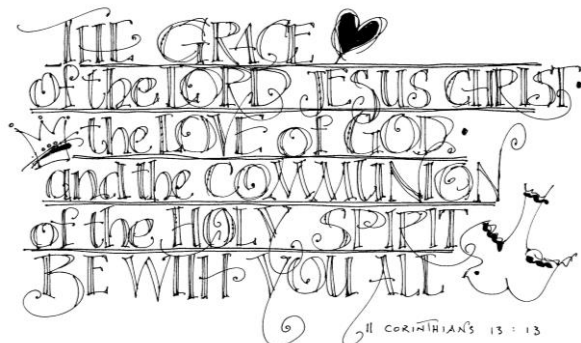 THE GRACE
of the LORD JESUS CHRIST.
the LOVE of GOD.
and the COMMUNION
of the HOLY SPIRIT
BE WITH YOU ALL
II CORINTHIANS 13:13